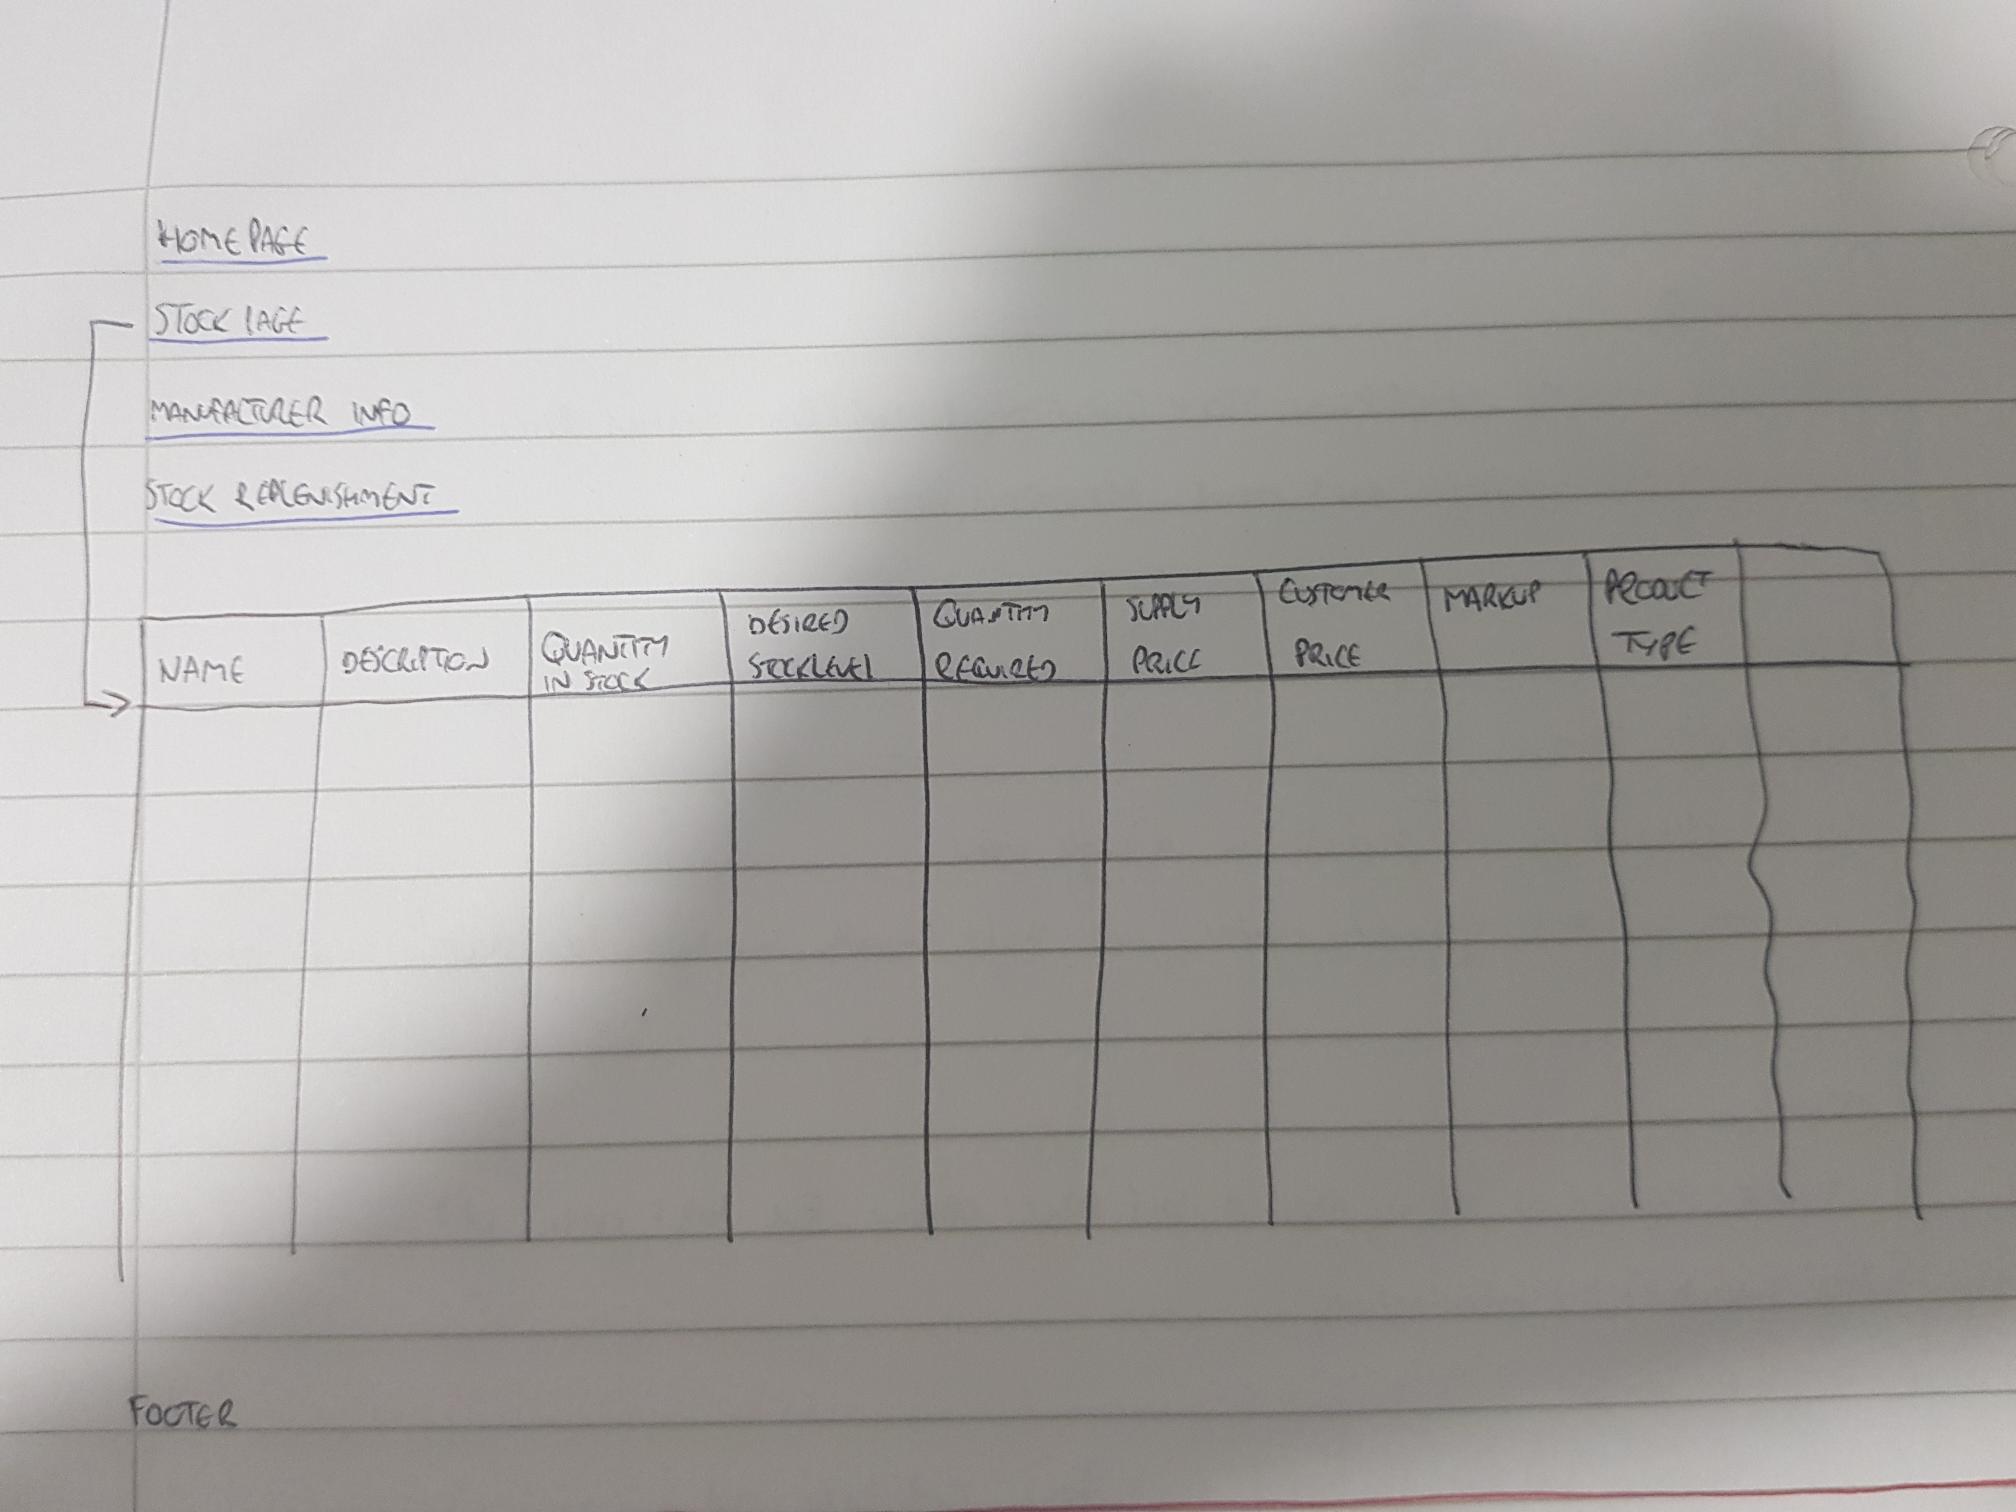 HOME PAGE
STOCK PAGE
MANUFACTURER INFO
STOCK REPLENISHMENT
NAME
DESCRIPTION
QUANTITY
IN STOCK
DESIRED
STOCK LEVEL
QUANTITY
REQUIRED
SUPPLY
PRICE
CUSTOMER
PRICE
MARKUP
PRODUCT
TYPE
FOOTER